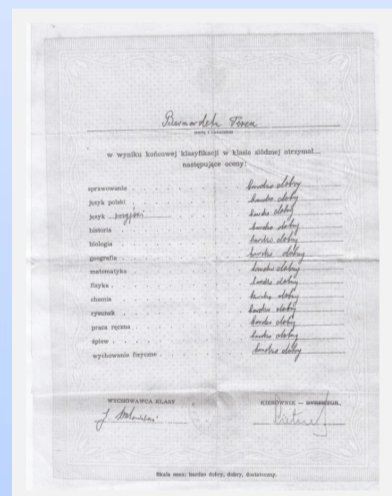 Bernardeta
imię i nazwisko
w wyniku końcowej klasyfikacji w klasie siódmej otrzymał
następujące oceny:
sprawowanie bardzo dobry
język polski bardzo dobry
język rosyjski bardzo dobry
historia bardzo dobry
biologia bardzo dobry
geografia bardzo dobry
matematyka bardzo dobry
fizyka bardzo dobry
chemia bardzo dobry
rysunek bardzo dobry
praca ręczna bardzo dobry
śpiew bardzo dobry
wychowanie fizyczne bardzo dobry
WYCHOWAWCA KLASY KIEROWNIK — DYREKTOR
Skala ocen: bardzo dobry, dobry, dostateczny.